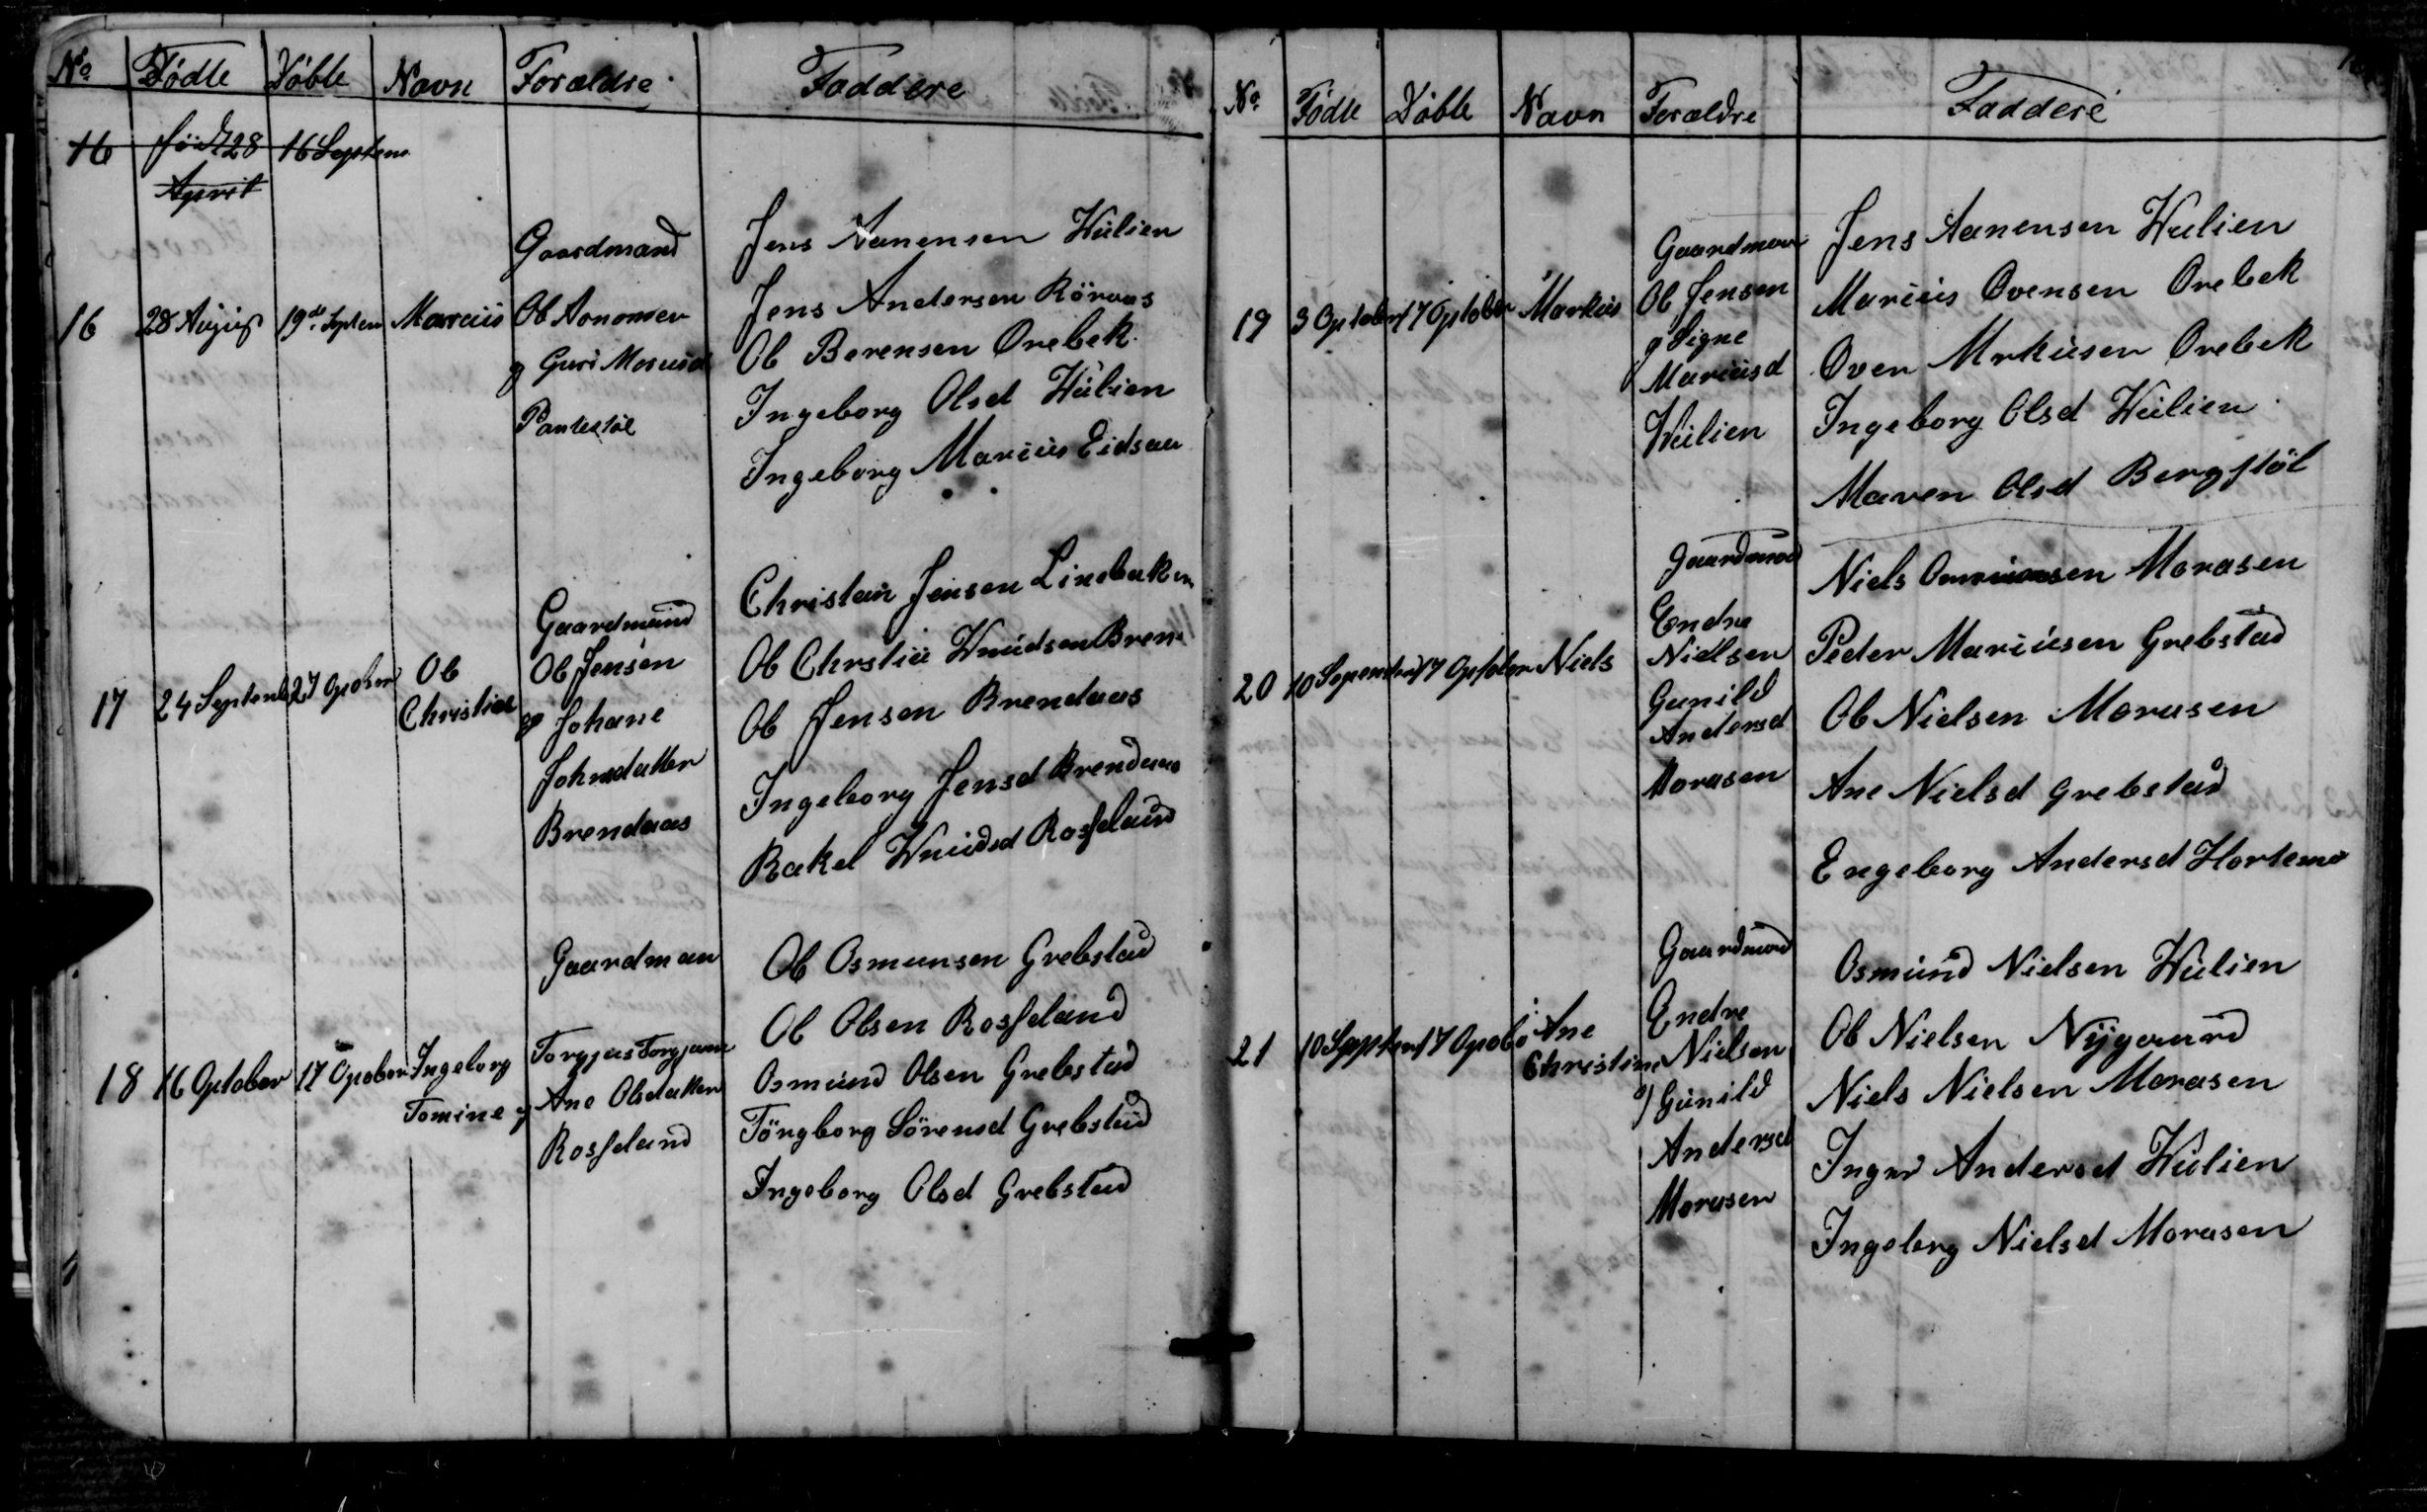 No Födte Döbte Navn Forældre Faddere
16 föd 28 16 Septem
April
Gaardmand
16 28 August 19de Septem Marcus Ob Aanonsen
og Guri Marcusd
Jens Aanensen Hulien
Jens Andersen Röraas
Ob Berensen Orebek
Ingeborg Olsd Hulien
Ingeborg Marcus Eidsaa
Gaardmand
17 24 Septemb 27 Opober Ob Christian
Ob Jensen
og Johane
Johnsdatter
Brendaas
Christain Jensen Linebaken
Ob Chrstia Knudsen Bren
Ob Jensen Brendaas
Ingeborg Jensd Brendaas
Rakel Knudsd Rosseland
Gaardman
18 16 Optober 17 Opober Ingeborg
Tomine
Torgjus Torgjusen
og Ane Olsdatter
Rosseland
Ob Osmunsen Grebstad
Ob Olsen Rosseland
Osmund Olsen Grebstad
Törgborg Sörensd Grebstad
Ingeborg Olsd Grebstad
No Födte Döbte Navn Forældre Faddere
Gaardman
19 3 Optober 17 Optober Markus Ob Jensen
og Signe
Marcusd
Hulien
Jens Aanensen Hulien
Marcus Ovensen Orebek
Oven Mrkusen Orebek
Ingeborg Olsd Hulien
Maren Olsd Bergstöl
Gaardmand
20 10 17 Optober Niels
Endre
Nielsen
Gunild
Andersd
Morasen
Niels Morasen
Peder Marcusen Grebstad
Ob Nielsen Morasen
Ane Nielsd Grebstad
Engeborg Andersd Hortemo
Gaardmand
21 10 Septem 17 Opobe Ane
Christine
Endre
Nielsen
og Gunild
Andersd
Morasen
Osmund Nielsen Hulien
Ob Nielsen Nygaard
Niels Nielsen Morasen
Inger Andersd Hulien
Ingeborg Nielsd Morasen